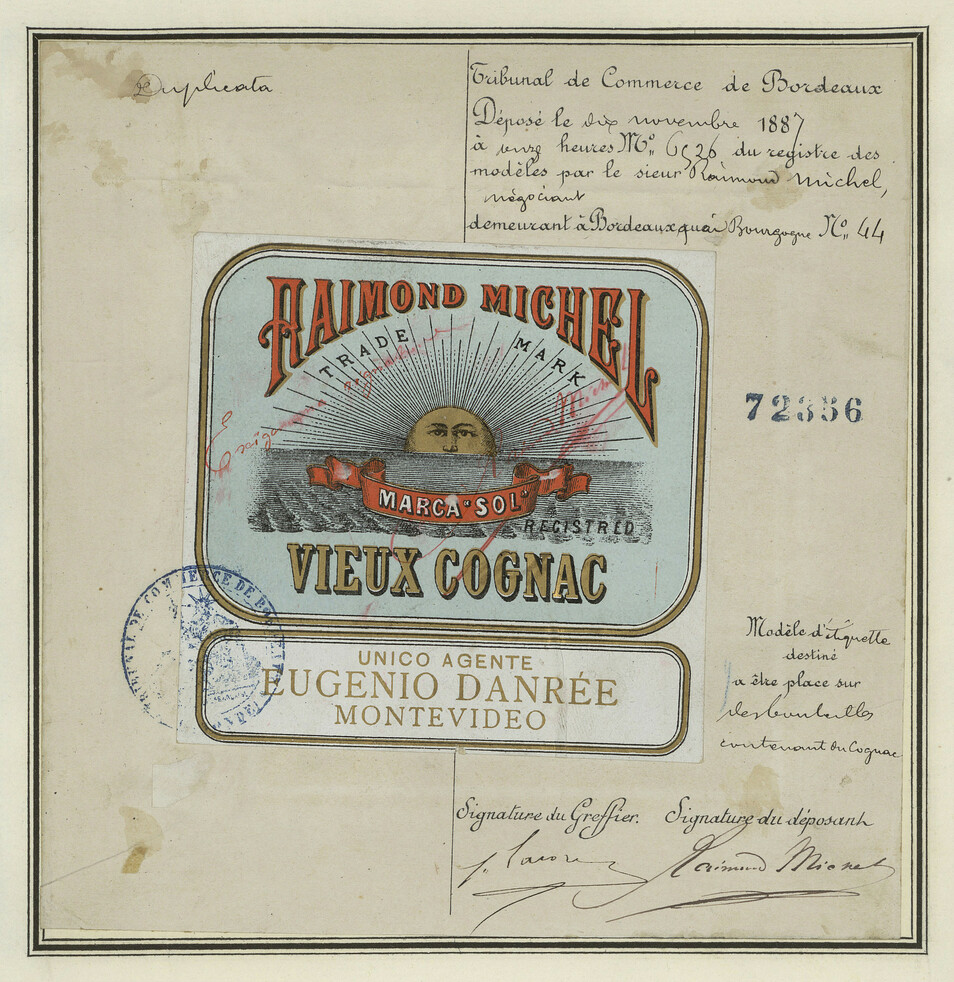 Duplicata
Tribunal de Commerce de Bordeaux
Déposé le dix novembre 1887
à onze heures No. 6526 du registre des
modèles par le sieur Raimond Michel,
négociant
demeurant à Bordeaux quai Bourgogne No. 44
RAIMOND MICHEL
TRADE MARK
MARCA "SOL"
REGISTRED
VIEUX COGNAC
72356
TRIBUNAL DE COMMERCE DE BORDEAUX
UNICO AGENTE
EUGENIO DANRÉE
MONTEVIDEO
Modèle d'étiquette
destiné
a être place sur
des bouteilles
contenant du Cognac
Signature du Greffier. Signature du déposant
Raimond Michel